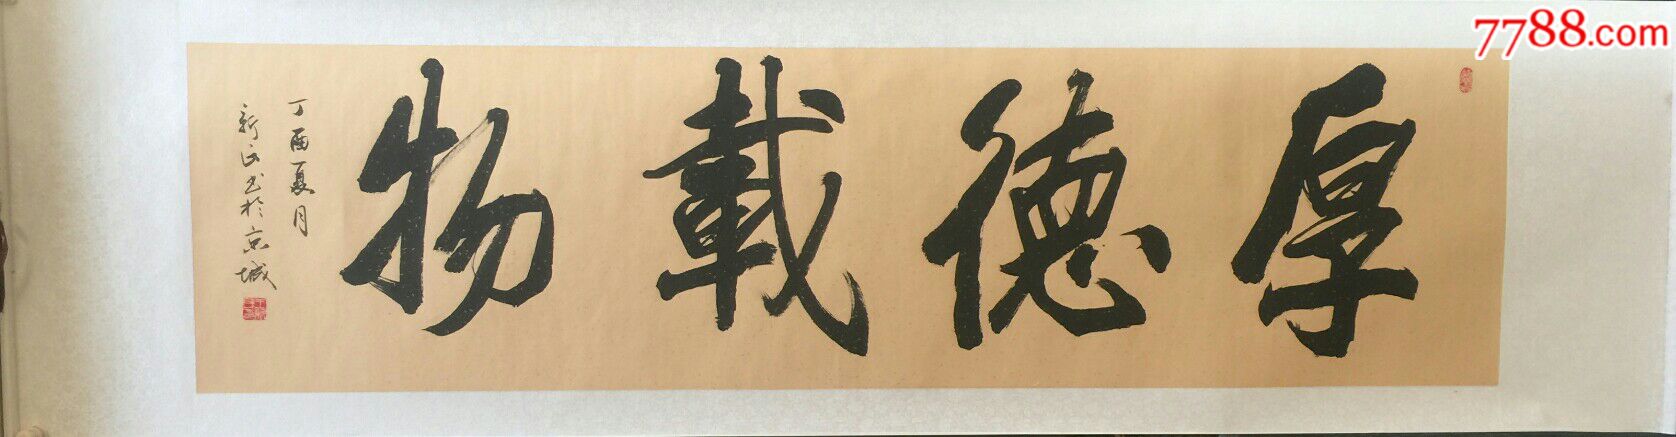 7788.com
厚德載物
丁酉夏月
新民书於京城